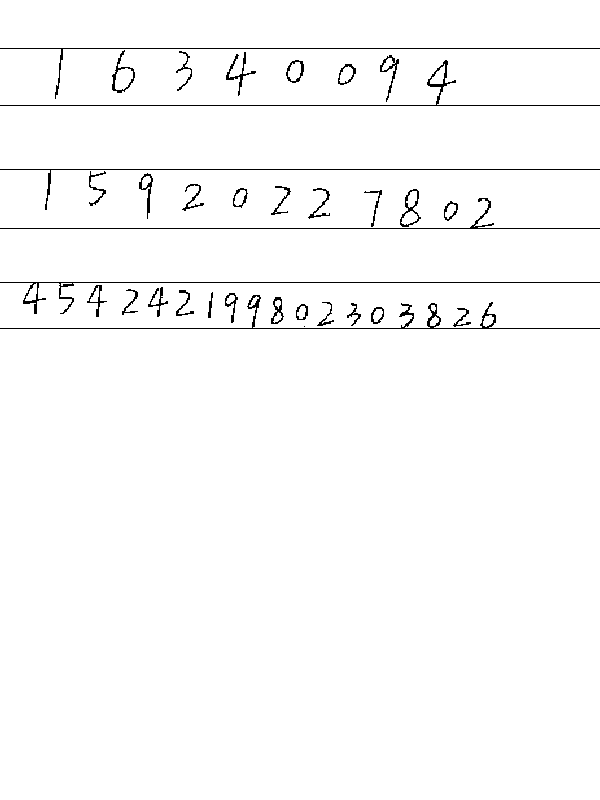 16340094
15920227802
454242199802303826